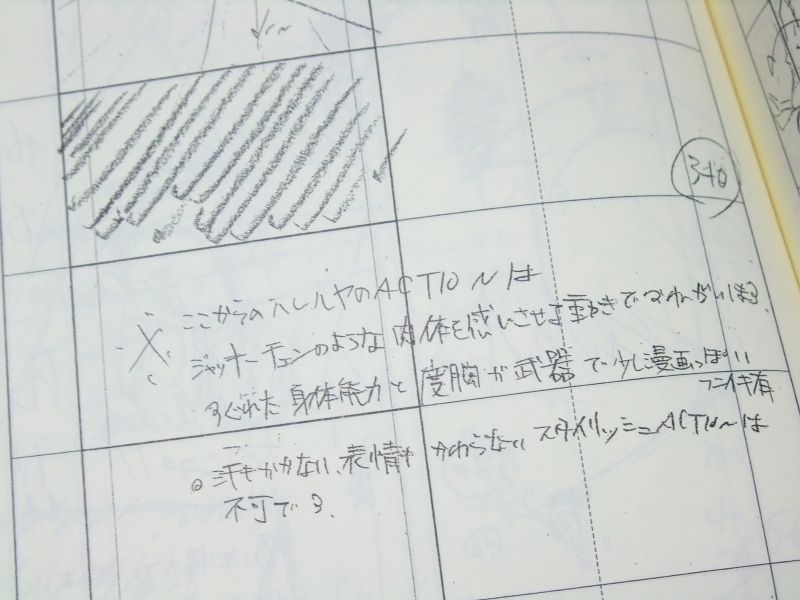 340
※ ここからのハレルヤのACTIONは
ジャッキーチェンのような肉体を感じさせる動きでおねがいします.
すぐれた身体能力と度胸が武器で少し漫画っぽい
フンイキ有
◎汗もかかない、表情もかわらないスタイリッシュACTIONは
不可です.